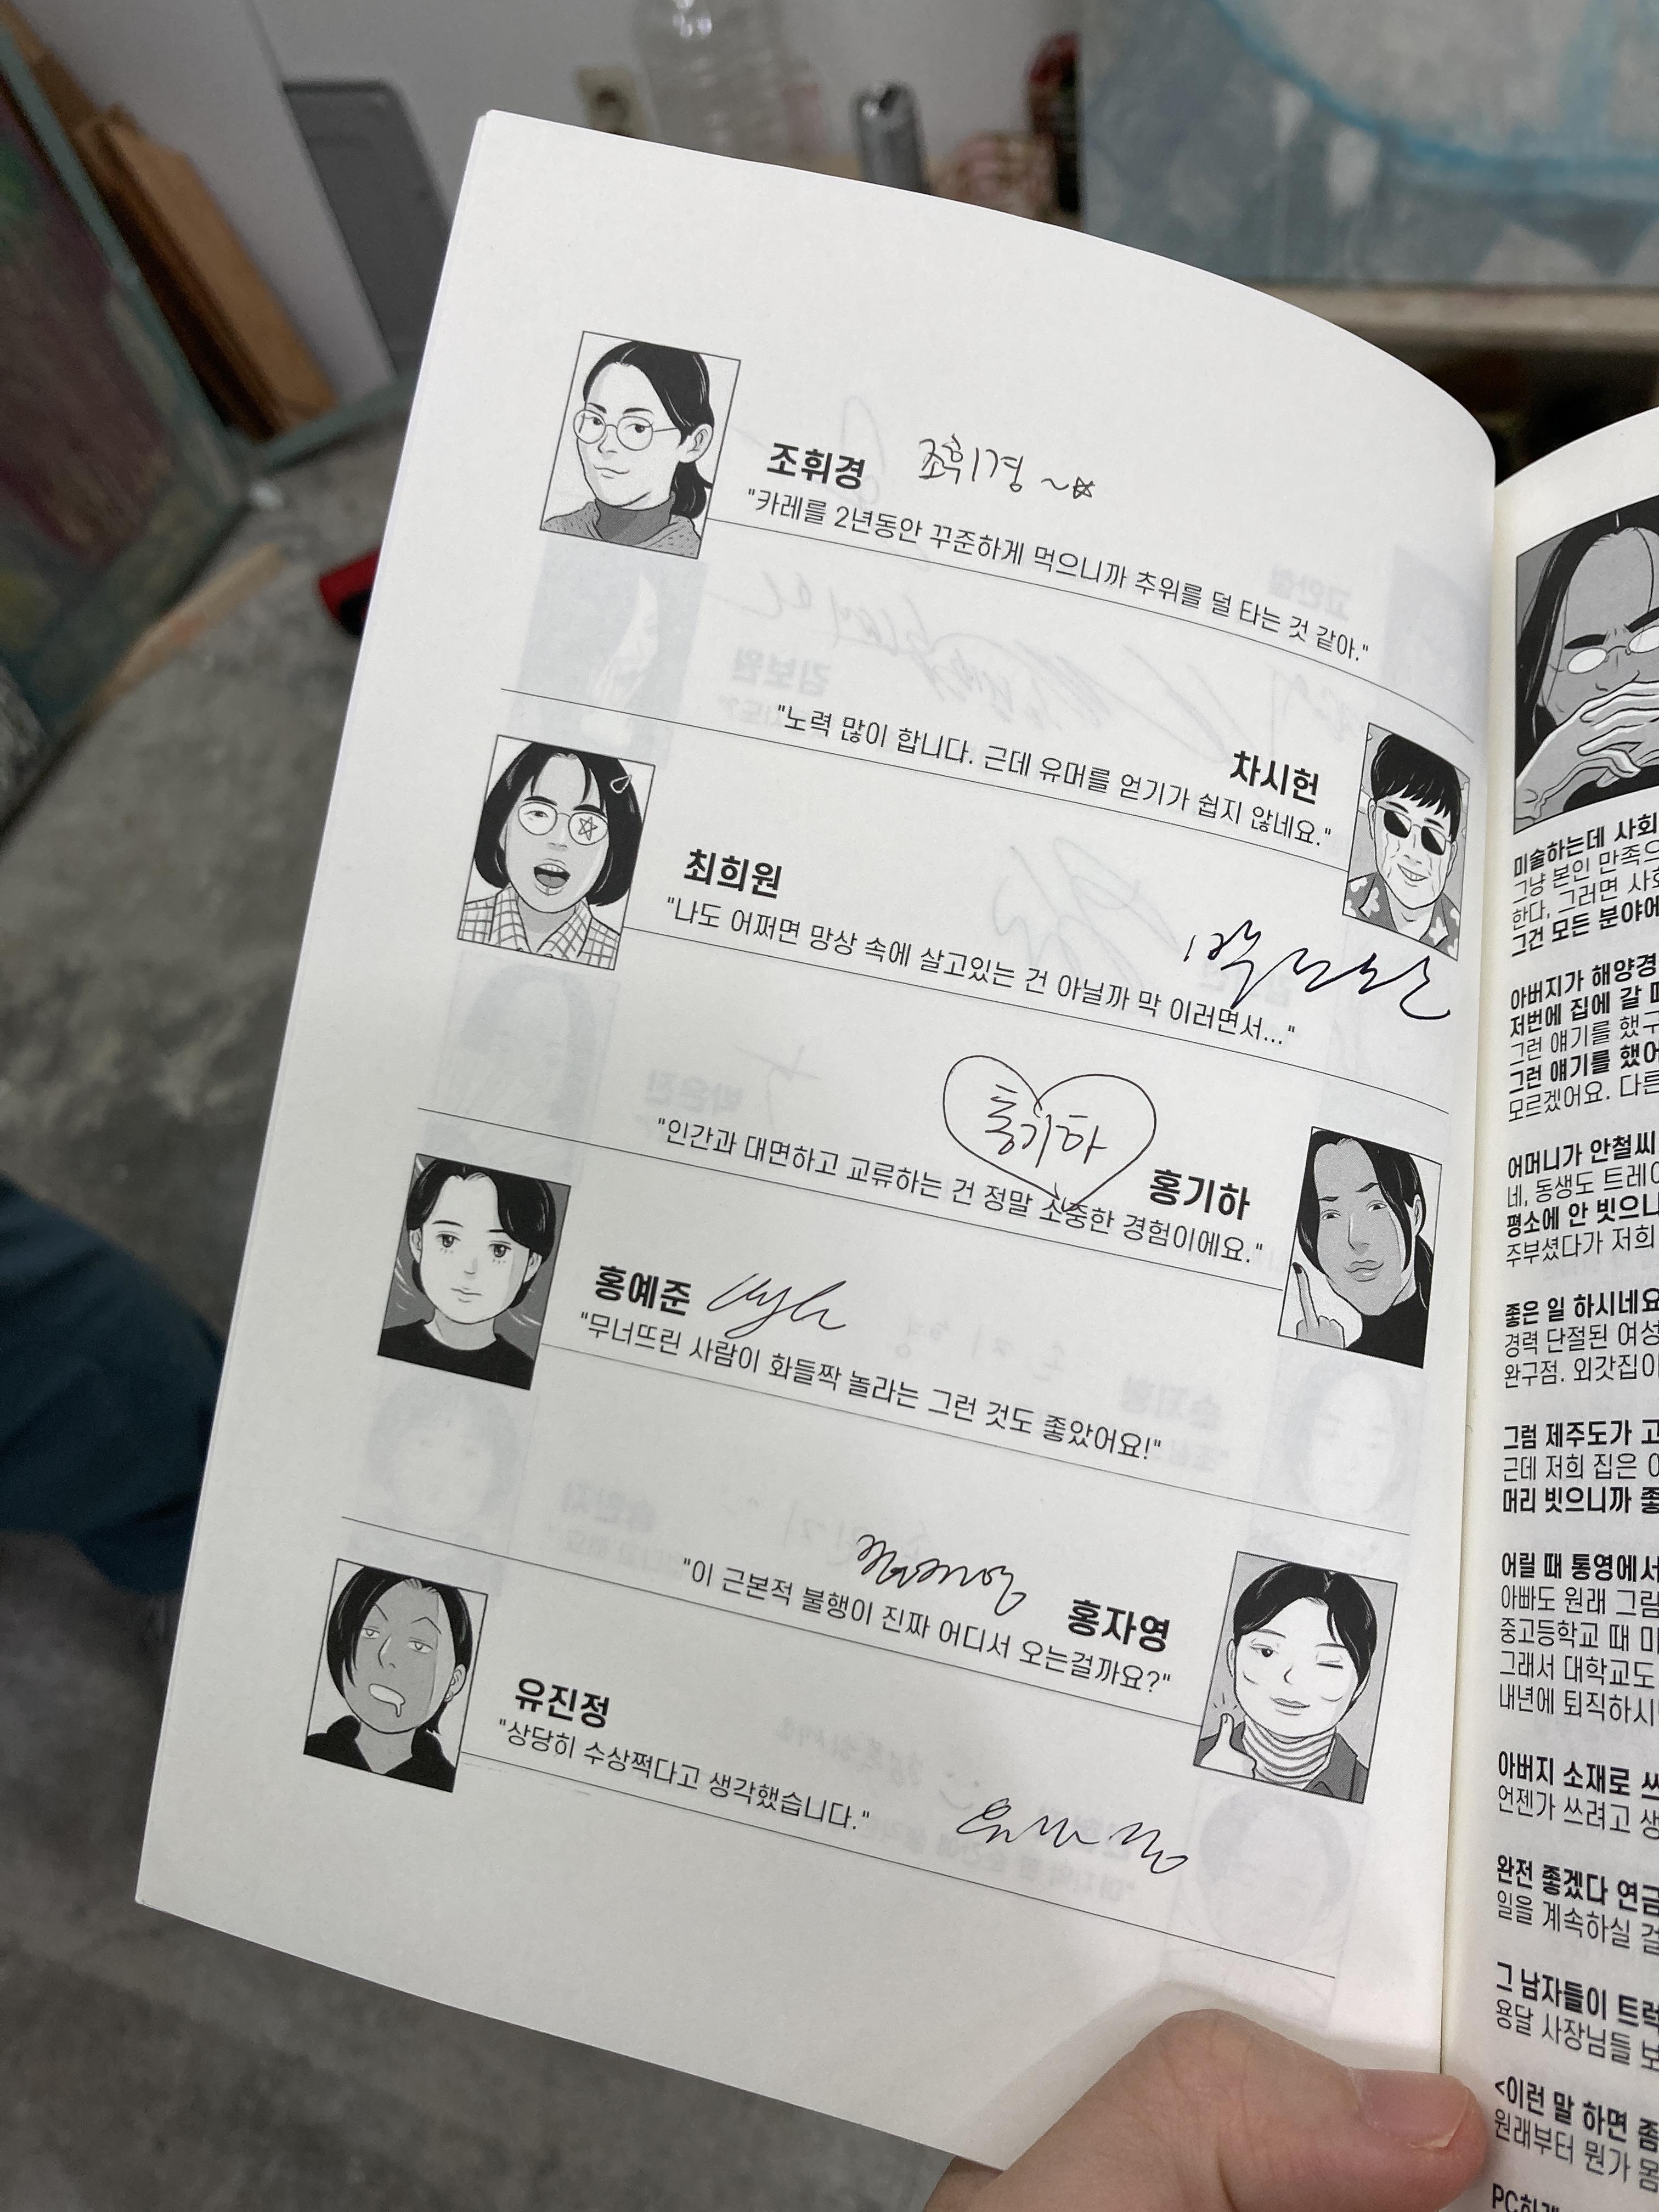 조휘경 조휘경 ~
"카레를 2년동안 꾸준하게 먹으니까 추위를 덜 타는 것 같아."
차시헌
"노력 많이 합니다. 근데 유머를 얻기가 쉽지 않네요."
최희원
"나도 어쩌면 망상 속에 살고있는 건 아닐까 막 이러면서..."
홍기하
홍기하
"인간과 대면하고 교류하는 건 정말 소중한 경험이에요."
홍예준
"무너뜨린 사람이 화들짝 놀라는 그런 것도 좋았어요!"
홍자영
"이 근본적 불행이 진짜 어디서 오는걸까요?"
유진정
"상당히 수상쩍다고 생각했습니다."
미술하는데 사회
그냥 본인 만족으
한다, 그러면 사회
그건 모든 분야에
아버지가 해양경
저번에 집에 갈 때
그런 얘기를 했구
그런 얘기를 했어
모르겠어요. 다른
어머니가 안철씨
네, 동생도 트레이
평소에 안 빗으니
주부셨다가 저희
좋은 일 하시네요
경력 단절된 여성
완구점. 외갓집이
그럼 제주도가 고
근데 저희 집은
머리 빗으니까 좋
어릴 때 통영에서
아빠도 원래 그림
중고등학교 때 미
그래서 대학교도
내년에 퇴직하시
아버지 소재로 쓰
언젠가 쓰려고 생
완전 좋겠다 연금
일을 계속하실 걸
그 남자들이 트럭
용달 사장님들 보
<이런 말 하면 좀
원래부터 뭔가 몸
PC하게